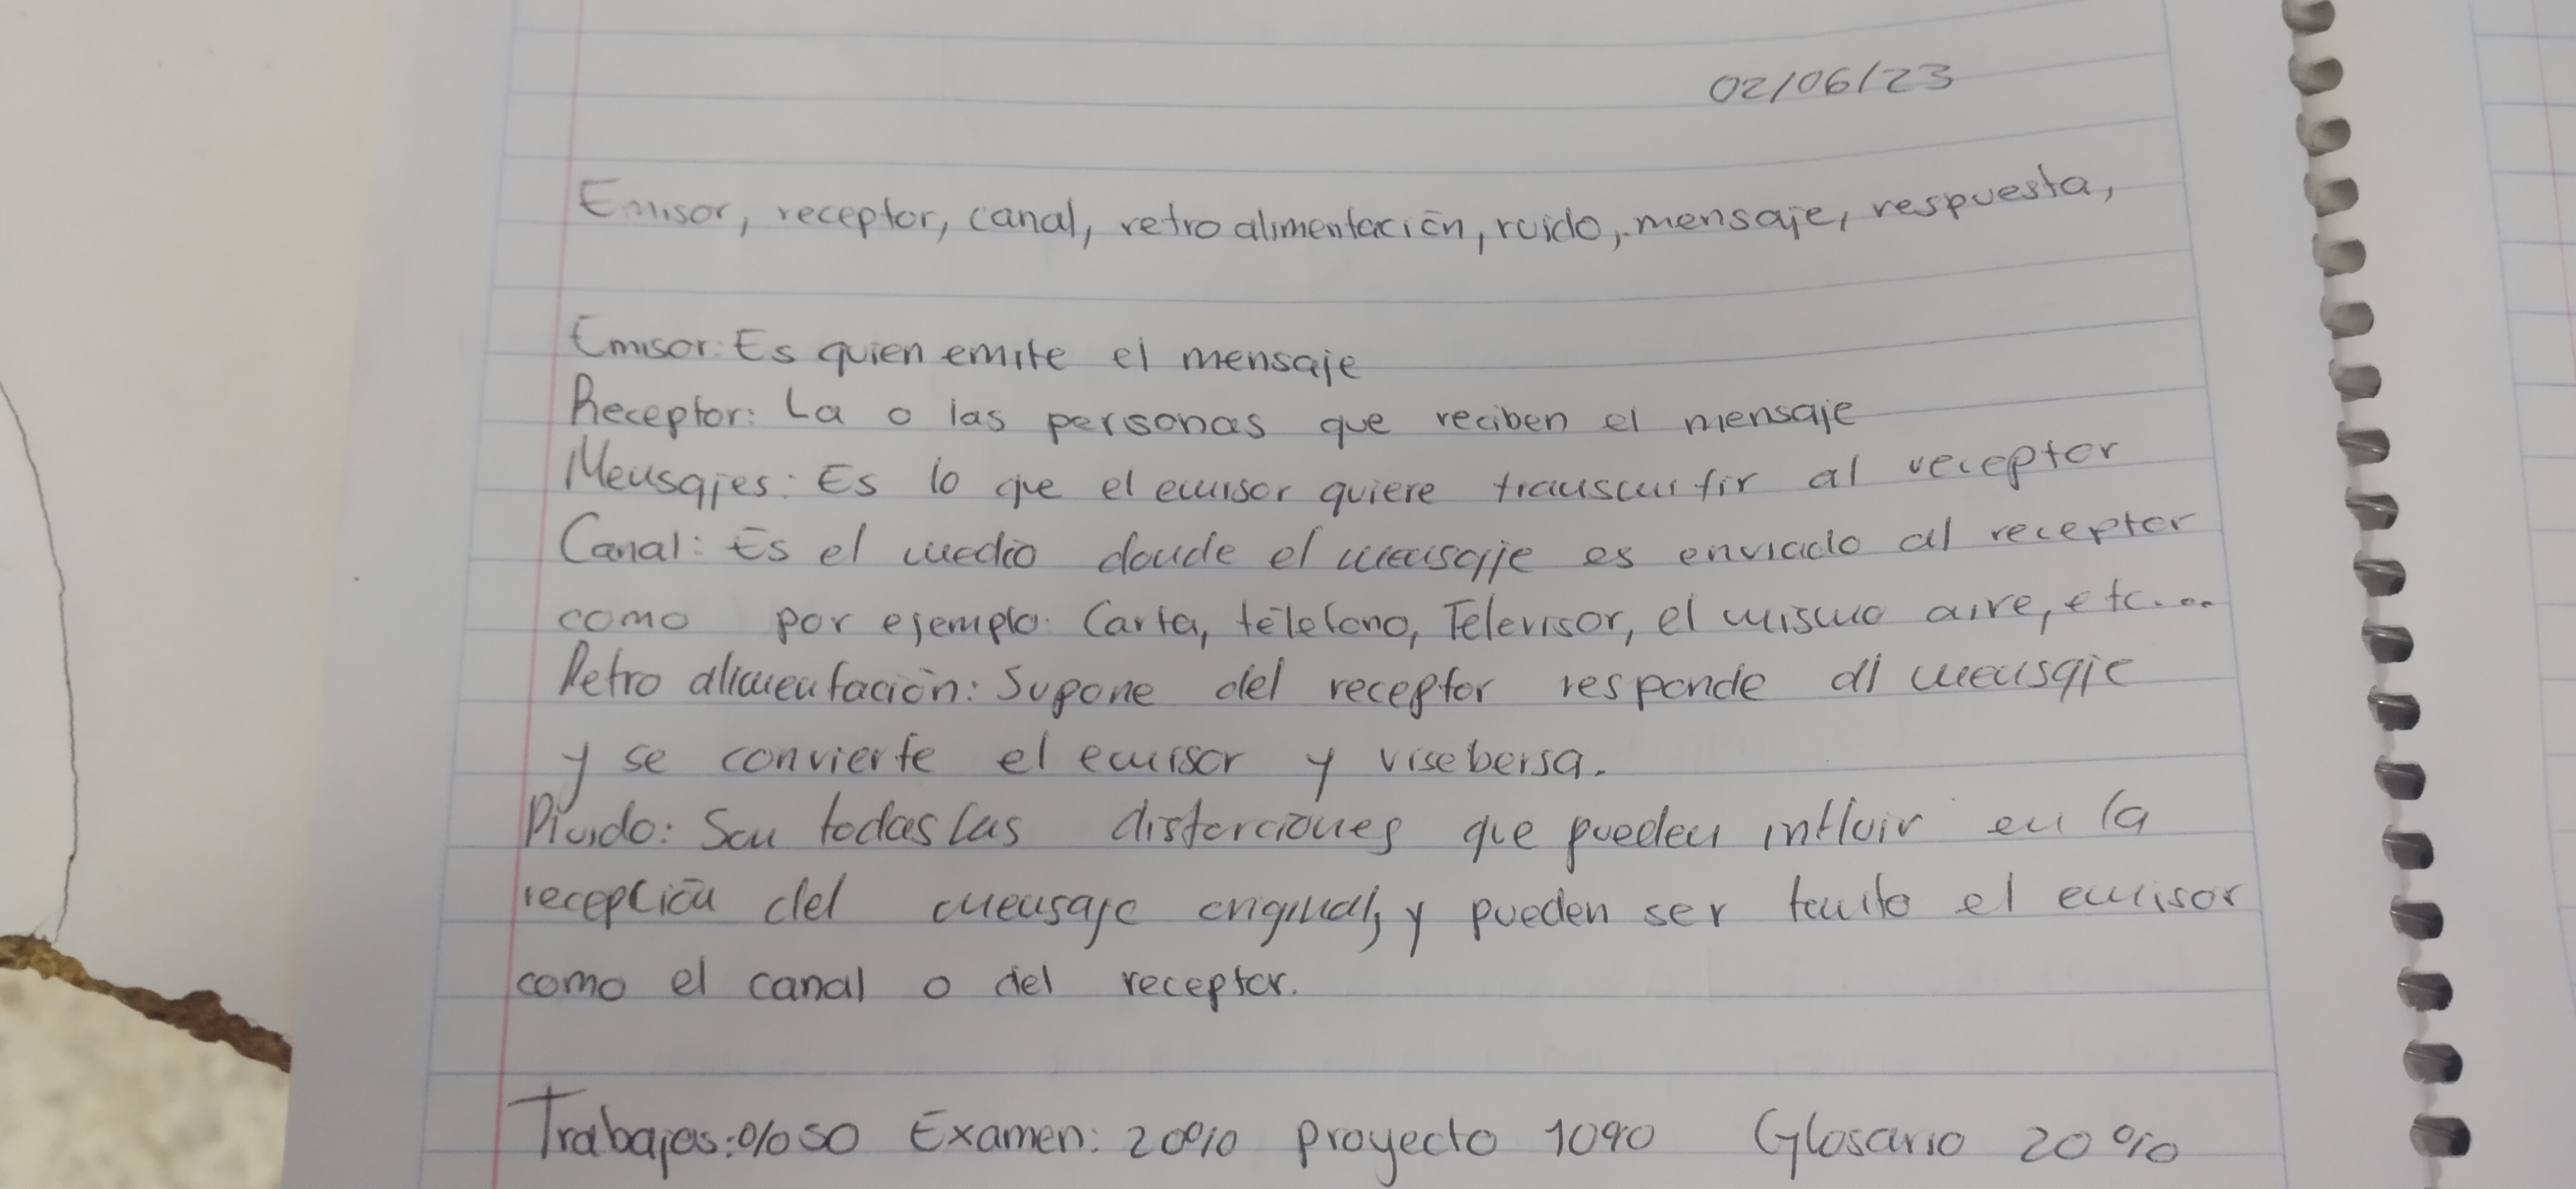 02/06/23
Emisor, receptor, canal, retro alimentación, ruido, mensaje, respuesta,
Emisor: Es quien emite el mensaje
Receptor: La o las personas que reciben el mensaje
Mensajes: Es lo que el emisor quiere transmitir al receptor
Canal: Es el medio donde el mensaje es enviado al receptor
como por ejemplo: Carta, télefono, Televisor, el mismo aire, etc...
Retro alimentación: Supone del receptor responde al mensaje
y se convierte el emisor y visebersa.
Ruido: Son todas las distorciones que pueden influir en la
recepción del mensaje original, y pueden ser tanto el emisor
como el canal o del receptor.
Trabajos: %50 Examen: 20% proyecto 10% Glosario 20%